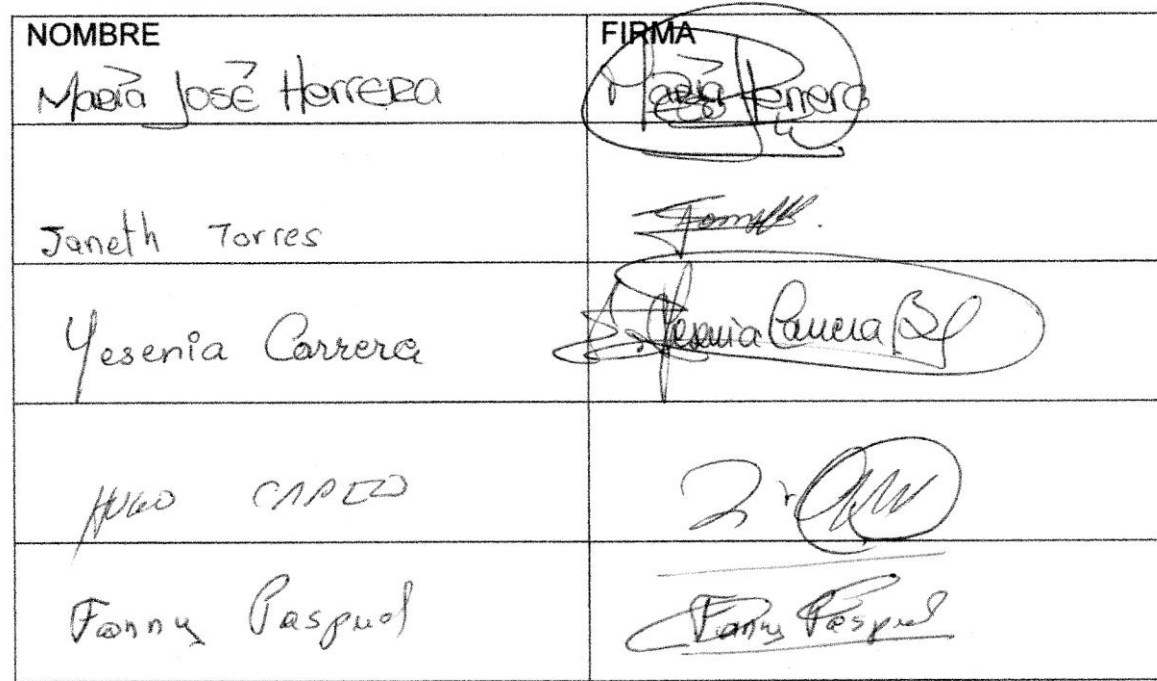 NOMBRE FIRMA
María José Herrera María Herrera
Janeth Torres
Yesenia Carrera Yesenia Carrera
Hugo
Fanny Paspuel Fanny Paspuel